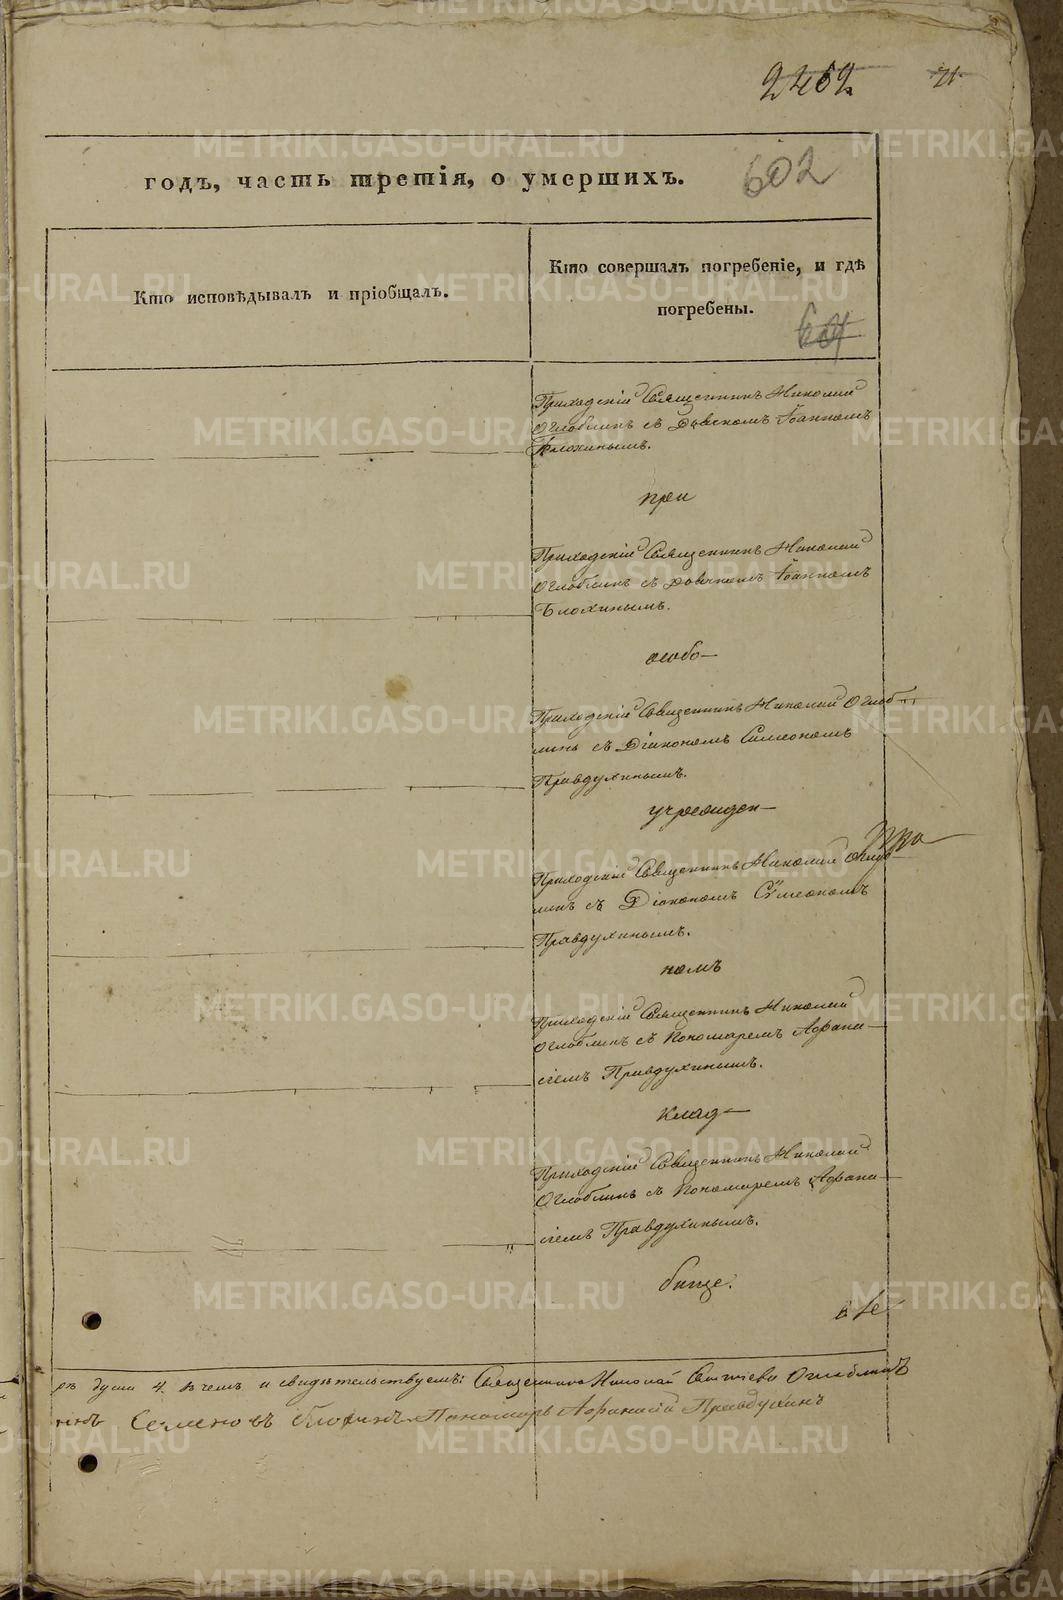 2462
71
годъ, часть третія, о умершихъ.
602
Кто исповѣдывалъ и пріобщалъ.
Кто совершалъ погребеніе, и гдѣ
погребены.
601
Приходскій Священникъ Николай
Оглоблинъ съ Дьячкомъ Іоанномъ
Блохинымъ.
при
Приходскій Священникъ Николай
Оглоблинъ съ Дьячкомъ Іоанномъ
Блохинымъ.
особо-
Приходскій Священникъ Николай Оглоб-
линъ съ Діакономъ Симеономъ
Правдухинымъ.
учрежден-
Приходскій Священникъ Николай Оглоб-
линъ съ Діакономъ Сѵмеономъ
Правдухинымъ.
номъ
Приходскій Священникъ Николай
Оглоблинъ съ Пономаремъ Афана-
сіемъ Правдухинымъ.
клад-
Приходскій Священникъ Николай
Оглоблинъ съ Пономаремъ Афана-
сіемъ Правдухинымъ.
бище.
души 4. въ чемъ и свидѣтельствуемъ: Священникъ Николай Оглоблинъ
Семеновъ Блохинъ Пономарь Афанасій Правдухинъ
METRIKI.GASO-URAL.RU